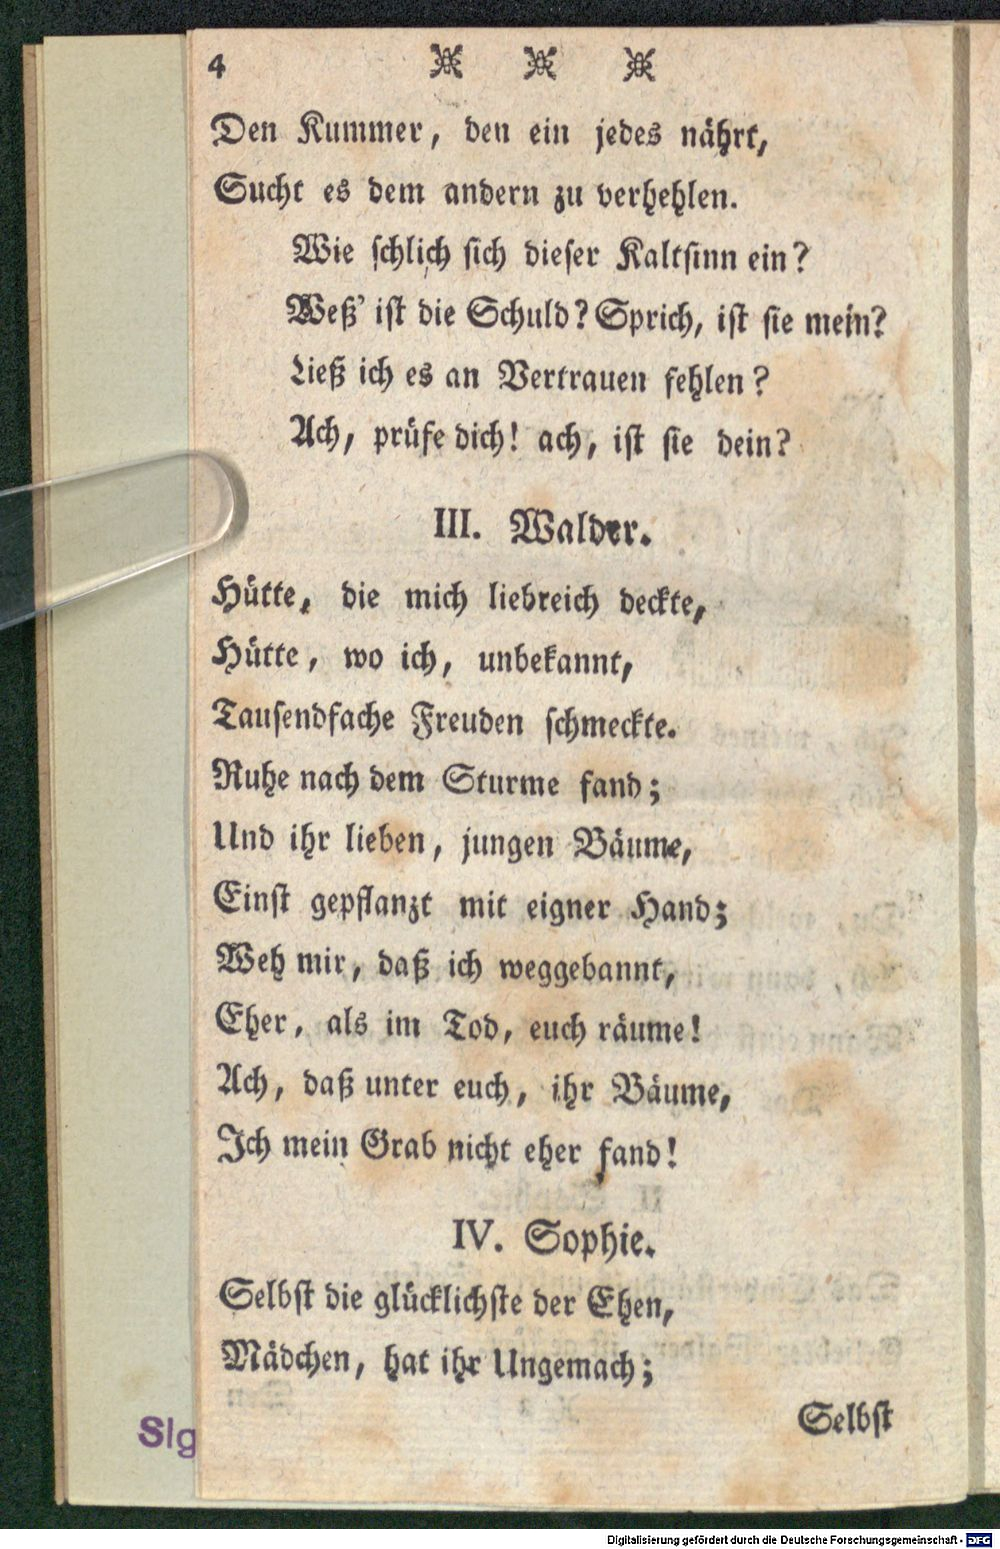 4
Den Kummer, den ein jedes nährt,
Sucht es dem andern zu verhehlen.
Wie schlich sich dieser Kaltsinn ein?
Weß' ist die Schuld? Sprich, ist sie mein?
Ließ ich es an Vertrauen fehlen?
Ach, prüfe dich! ach, ist sie dein?
III. Walder.
Hütte, die mich liebreich deckte,
Hütte, wo ich, unbekannt,
Tausendfache Freuden schmeckte.
Ruhe nach dem Sturme fand;
Und ihr lieben, jungen Bäume,
Einst gepflanzt mit eigner Hand;
Weh mir, daß ich weggebannt,
Eher, als im Tod, euch räume!
Ach, daß unter euch, ihr Bäume,
Ich mein Grab nicht eher fand!
IV. Sophie.
Selbst die glücklichste der Ehen,
Mädchen, hat ihr Ungemach;
Selbst
Slg
Digitalisierung gefördert durch die Deutsche Forschungsgemeinschaft - DFG